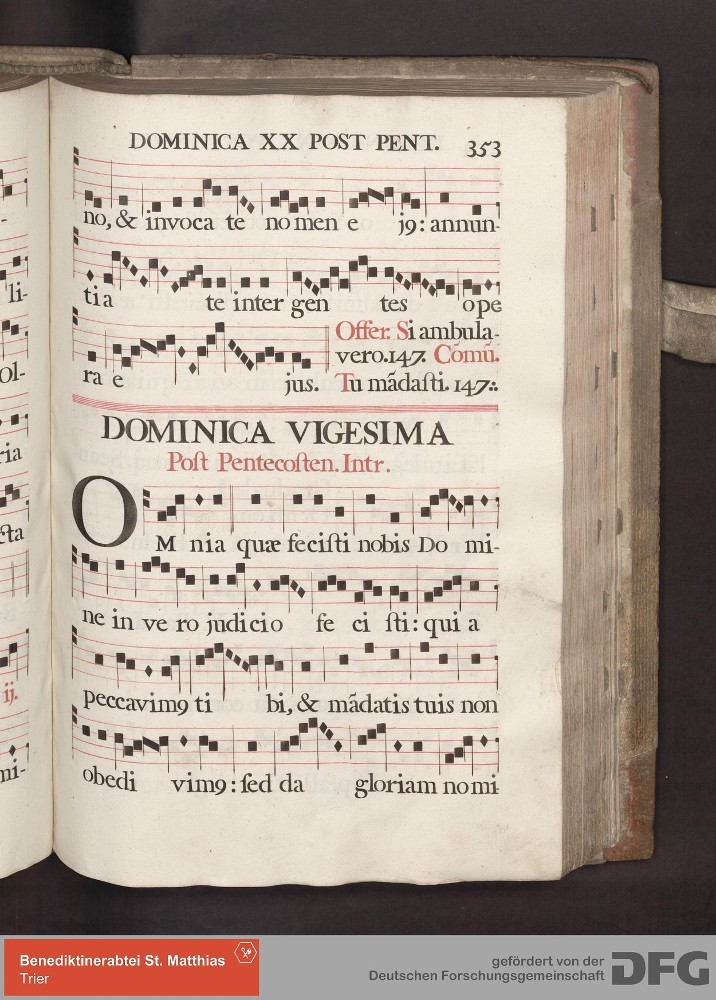 DOMINICA XX POST PENT. 353
no, & invoca te no men e j9: annun-
tia te inter gen tes ope
ra e jus.
Offer. Si ambula-
vero.147. Cõmũ.
Tu mãdaſti. 147:.
DOMINICA VIGESIMA
Poſt Pentecoſten. Intr.
OM nia quæ feciſti nobis Do mi-
ne in ve ro judicio fe ci ſti: qui a
peccavim9 ti bi, & mãdatis tuis non
obedi vim9: ſed da gloriam no mi-
li-
ol-
ria
cta
ij.
mi-
Benediktinerabtei St. Matthias
Trier
gefördert von der
Deutschen Forschungsgemeinschaft
DFG